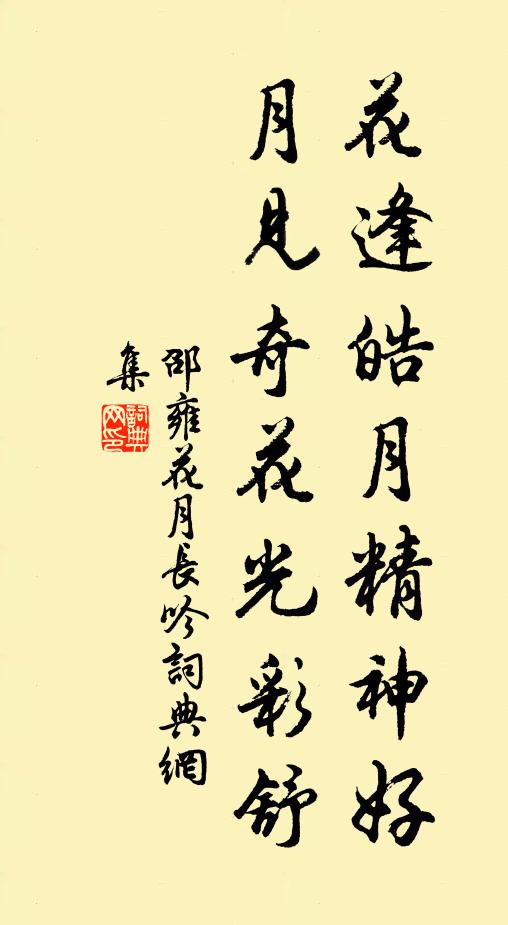 花逢皓月精神好
月見奇花光彩舒
邵雍花月長吟詞典網
集
詞典
网印